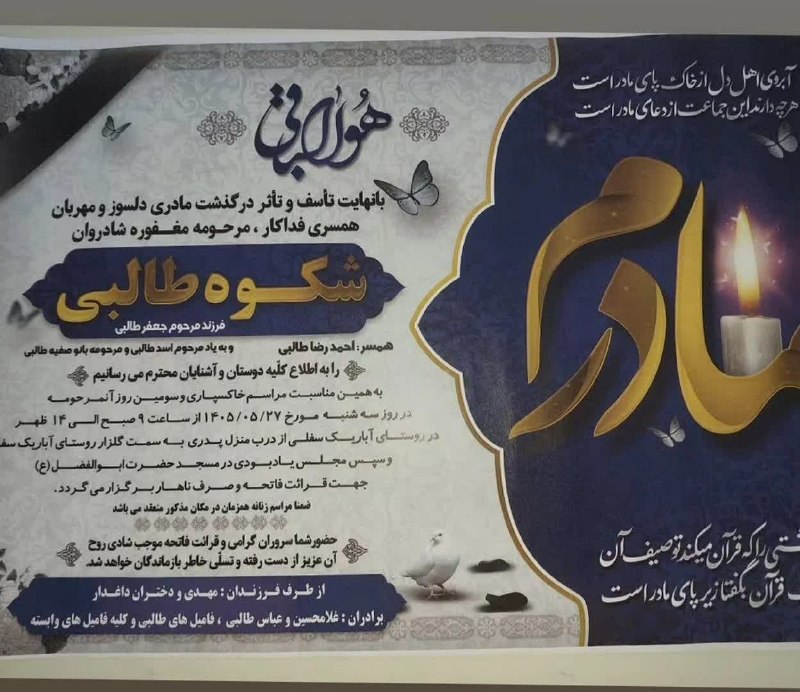 آبروی اهل دل از خاک پای مادر است
هرچه دارند این جماعت از دعای مادر است
مادرم
هوالباقی
بانهایت تأسف و تأثر درگذشت مادری دلسوز و مهربان
همسری فداکار ، مرحومه مغفوره شادروان
شکوه طالبی
فرزند مرحوم جعفر طالبی
همسر: احمد رضا طالبی و به یاد مرحوم اسد طالبی و مرحومه بانو صفیه طالبی
را به اطلاع کلّیه دوستان و آشنایان محترم می رسانیم
به همین مناسبت مراسم خاکسپاری و سومین روز آنمرحومه
در روز سه شنبه مورخ ۱۴۰۵/۰۵/۲۷ از ساعت ۹ صبح الی ۱۴ ظهر
در روستای آباریک سفلی از درب منزل پدری به سمت گلزار روستای آباریک سفلی
و سپس مجلس یادبودی در مسجد حضرت ابوالفضل (ع)
جهت قرائت فاتحه و صرف ناهار برگزار می گردد.
ضمنا مراسم زنانه همزمان در مکان مذکور منعقد می باشد
حضورشما سروران گرامی و قرائت فاتحه موجب شادی روح
آن عزیز از دست رفته و تسلّی خاطر بازماندگان خواهد شد.
از طرف فرزندان : مهدی و دختران داغدار
برادران : غلامحسین و عباس طالبی ، فامیل های طالبی و کلیه فامیل های وابسته
را که قرآن میکند توصیف آن
قرآن بگفتا زیر پای مادر است